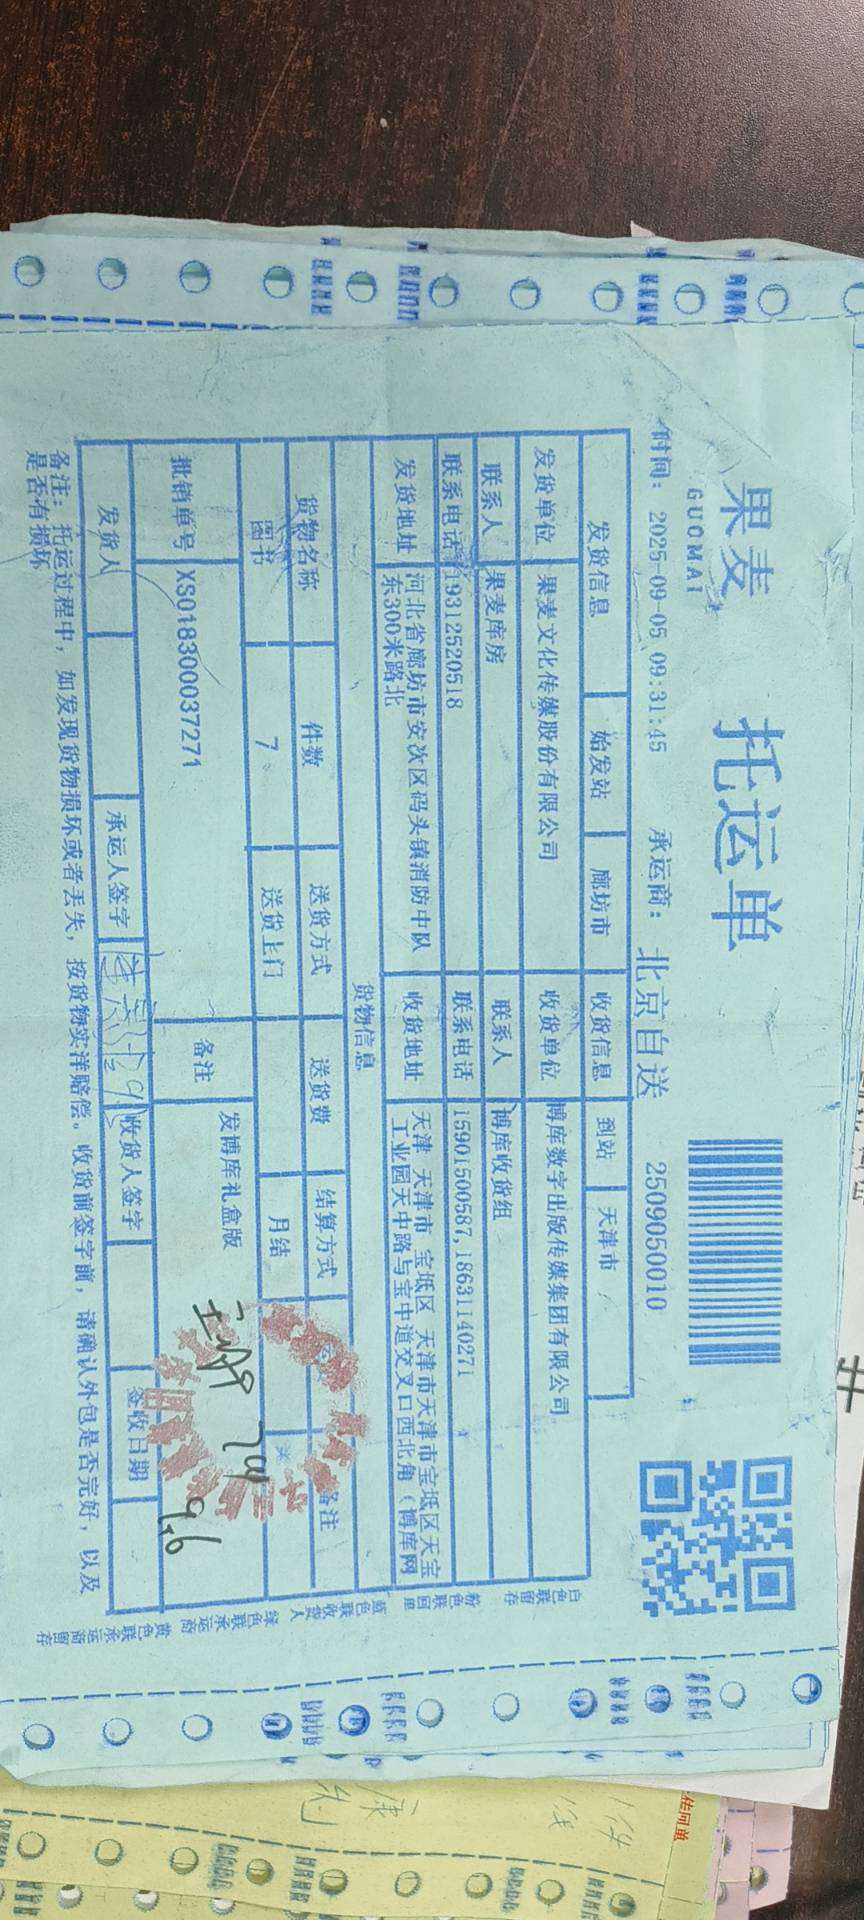 果麦
GUOMAI
托运单
时间： 2025-09-05 09:31:45 承运商： 北京自送 2509050010
发货信息 始发站 廊坊市 收货信息 到站 天津市
发货单位 果麦文化传媒股份有限公司 收货单位 博库数字出版传媒集团有限公司
联系人 果麦库房 联系人 博库收货组
联系电话 19312520518 联系电话 15901500587,18631140271
发货地址 河北省廊坊市安次区码头镇消防中队 收货地址 天津 天津市 宝坻区 天津市天津市宝坻区天宝
东300米路北 工业园天中路与宝中道交叉口西北角（博库网
货物信息
货物名称 件数 送货方式 送货费 结算方式 备注
图书 7 送货上门 月结
批销单号 XS018300037271 备注 发博库礼盒版
9.6
发货人 承运人签字 收货人签字 签收日期
备注：托运过程中，如发现货物损坏或者丢失，按货物实洋赔偿。收货前签字前，请确认外包是否完好，以及
是否有损坏
白色联留存 粉色联回单 蓝色联收货人 绿色联承运商 黄色联承运商留存